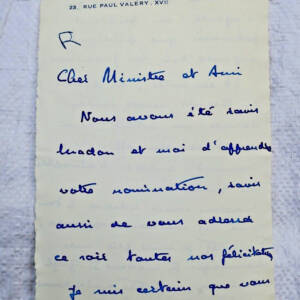 23, RUE PAUL VALÉRY, XVIE
R
Cher Ministre et Ami
Nous avons été ravis
et moi d'apprendre
votre nomination, ravis
aussi de vous adresser
ce soir toutes nos félicitations
Je suis certain que vous